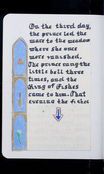 On the third day,
the prince led the
mare to the meadow
where she once
more vanished.
The prince rung the
little bell three
times, and the
King of Fishes
came to him. That
evening the fisher